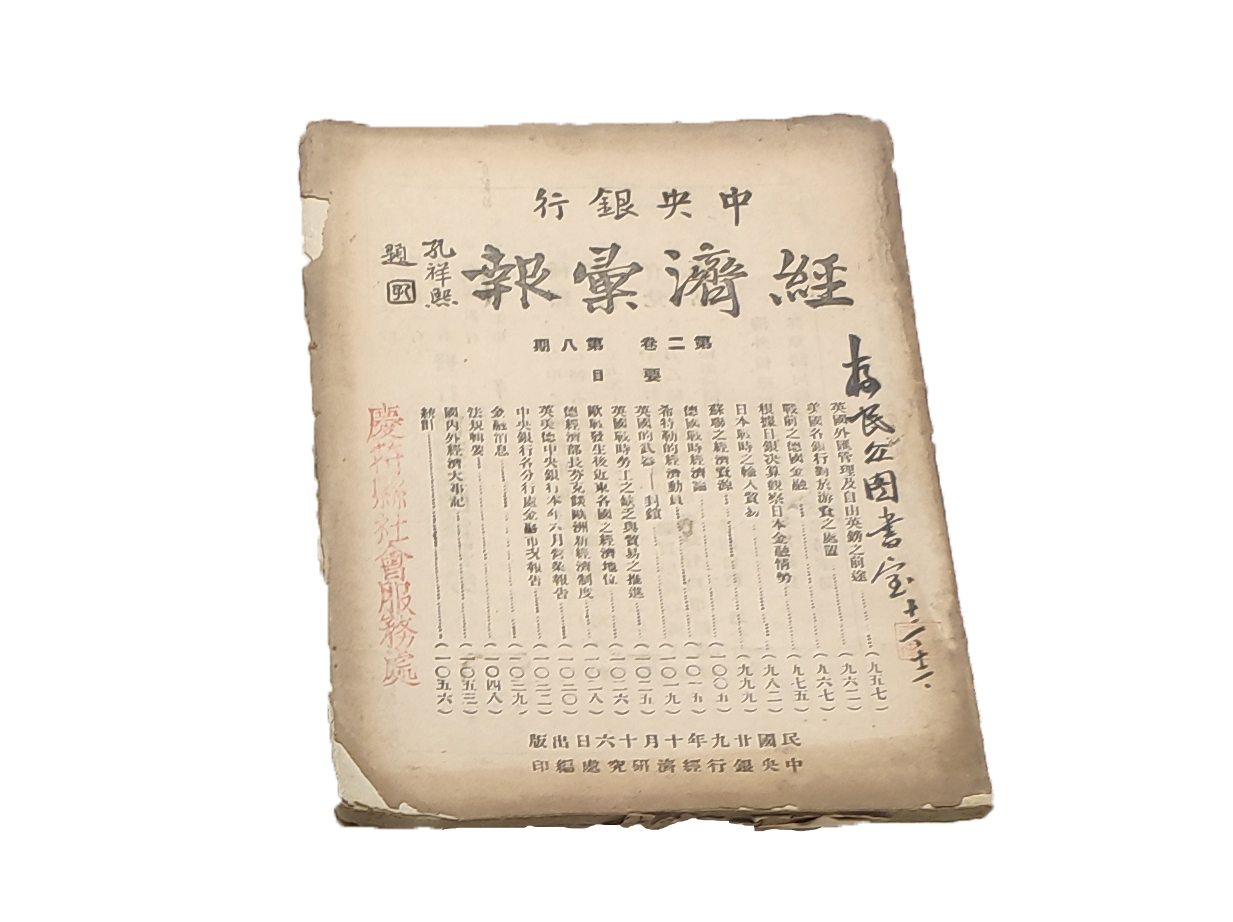 中央銀行
經濟彙報
孔祥熙
題
第二卷 第八期
要目
英國外匯管理及自由英鎊之前途……(九五七)
美國各銀行對於游資之處置……(九六二)
戰前之德國金融……(九六七)
根據日銀決算觀察日本金融情勢……(九七五)
日本戰時之輸入貿易……(九八二)
蘇聯之經濟資源……(九九九)
德國戰時經濟論……(一〇〇五)
希特勒的經濟動員……(一〇一五)
英國的武器——封鎖……(一〇一九)
英國戰時勞工之缺乏與貿易之推進……(一〇二五)
歐戰發生後近東各國之經濟地位……(一〇二六)
德經濟部長芬克談歐洲新經濟制度……(一〇二八)
英美德中央銀行本年六月營業報告……(一〇三〇)
中央銀行各分行處金融市況報告……(一〇三二)
金融消息……(一〇三九)
法規輯要……(一〇四八)
國內外經濟大事記……(一〇五三)
統計……(一〇五六)
民國廿九年十月十六日出版
中央銀行經濟研究處編印
民公園書室
慶符縣社會服務院